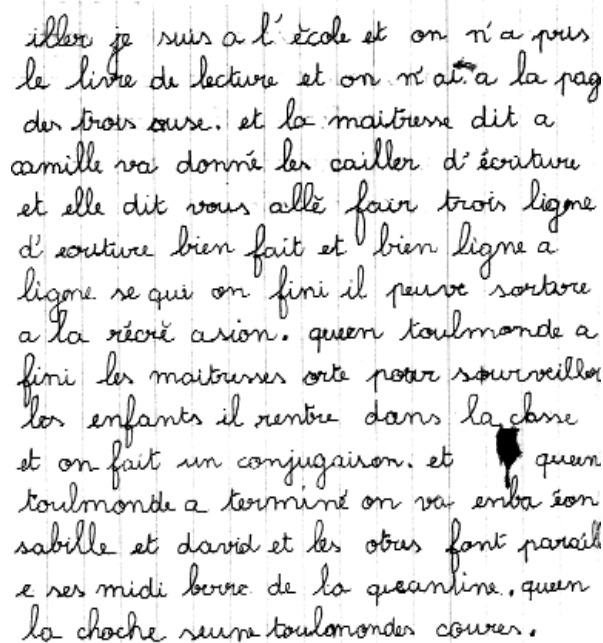 iller je suis a l'école et on n'a pris
le livre de lecture et on n'ai a la pag
des trois ouse. et la maitresse dit a
camille va donné les cailler d'écriture
et elle dit vous allé fair trois ligne
d'ecriture bien fait et bien ligne a
ligne se qui on fini il peuve sortire
a la récré asion. queen toulmonde a
fini les maitresses orte pour sourveiller
les enfants il rentre dans la classe
et on fait un conjugaison. et queen
toulmonde a terminé on va enba éon
sabille et david et les otres font paraill
e ses midi berre de la queantine. queen
la choche seune toulmondes coures.